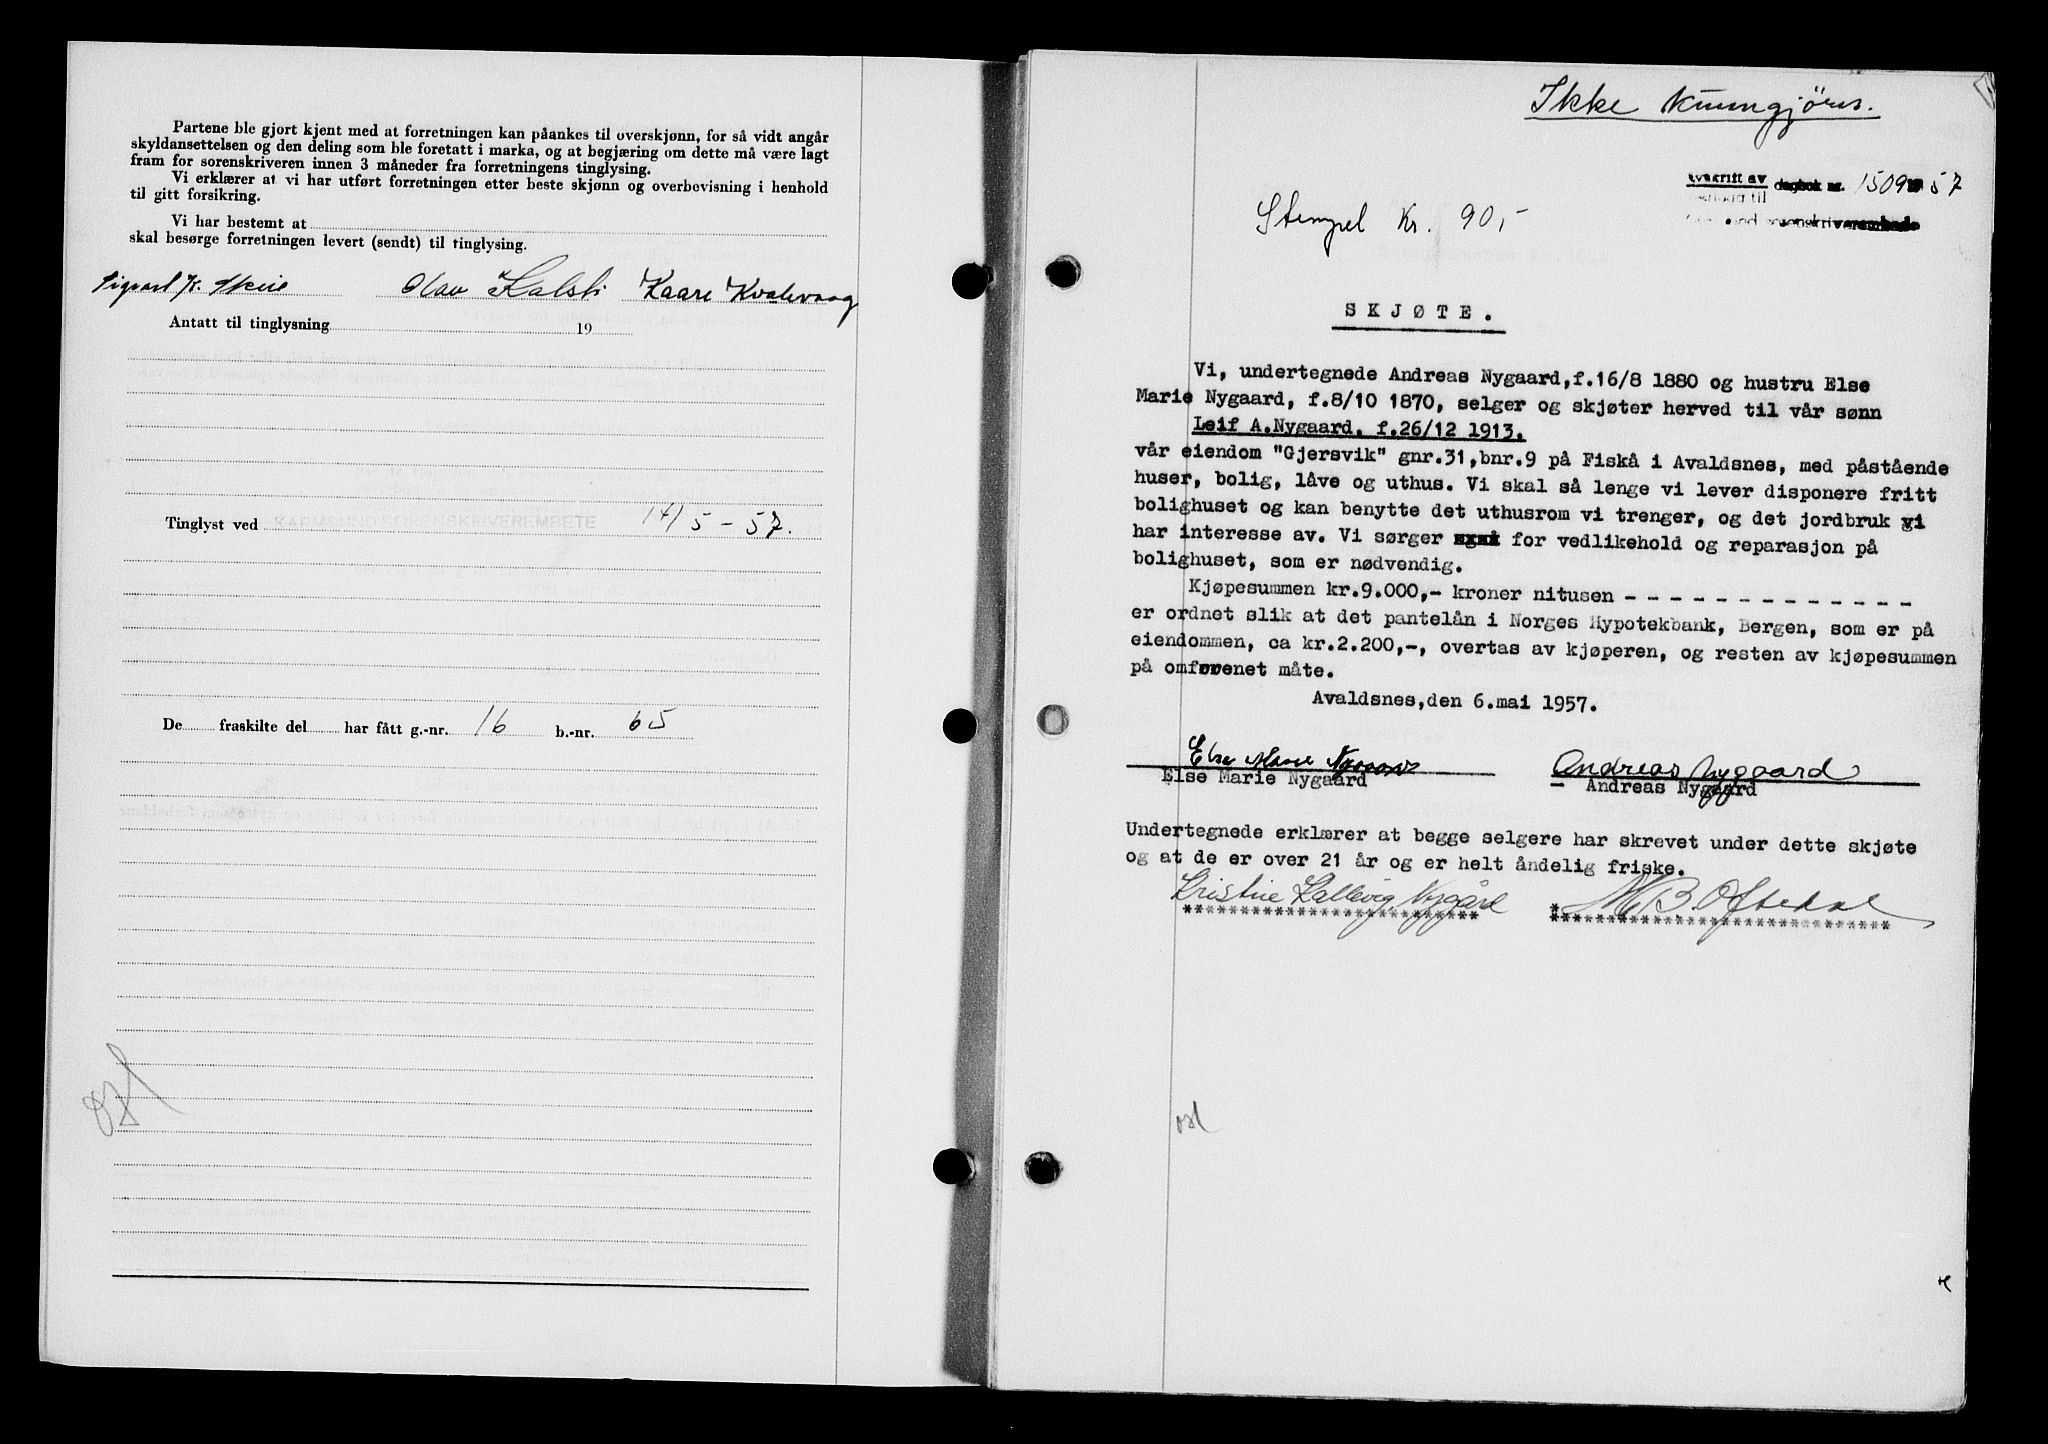 Partene ble gjort kjent med at forretningen kan påankes til overskjønn, for så vidt angår
skyldansettelsen og den deling som ble foretatt i marka, og at begjæring om dette må være lagt
fram for sorenskriveren innen 3 måneder fra forretningens tinglysing.
Vi erklærer at vi har utført forretningen etter beste skjønn og overbevisning i henhold
til gitt forsikring.
Vi har bestemt at
skal besørge forretningen levert (sendt) til tinglysing.
Sigvart K. Skeie Olav Kalstø Kaare Kvalevaag
Antatt til tinglysning 19
Tinglyst ved KARMSUND SORENSKRIVEREMBETE 14/5-57.
De fraskilte del har fått g.-nr. 16 b.-nr. 65
Ikke kunngjøres.
avskrift av dagbok nr. 1509 19 57
sorenskriverembede
Stempel kr. 90,-
SKJØTE.
Vi, undertegnede Andreas Nygaard, f.16/8 1880 og hustru Else
Marie Nygaard, f.8/10 1870, selger og skjøter herved til vår sønn
Leif A.Nygaard. f.26/12 1913.
vår eiendom "Gjersvik" gnr.31,bnr.9 på Fiskå i Avaldsnes, med påstående
huser, bolig, låve og uthus. Vi skal så lenge vi lever disponere fritt
bolighuset og kan benytte det uthusrom vi trenger, og det jordbruk vi
har interesse av. Vi sørger for vedlikehold og reparasjon på
bolighuset, som er nødvendig.
Kjøpesummen kr.9.000,- kroner nitusen - - - - - - - - - - - - - -
er ordnet slik at det pantelån i Norges Hypotekbank, Bergen, som er på
eiendommen, ca kr.2.200,-, overtas av kjøperen, og resten av kjøpesummen
på omforenet måte.
Avaldsnes,den 6.mai 1957.
Else Marie Nygaard Andreas Nygaard
Else Marie Nygaard Andreas Nygaard
Undertegnede erklærer at begge selgere har skrevet under dette skjøte
og at de er over 21 år og er helt åndelig friske.
Kristine Kallevig Nygård M B. Oftedal